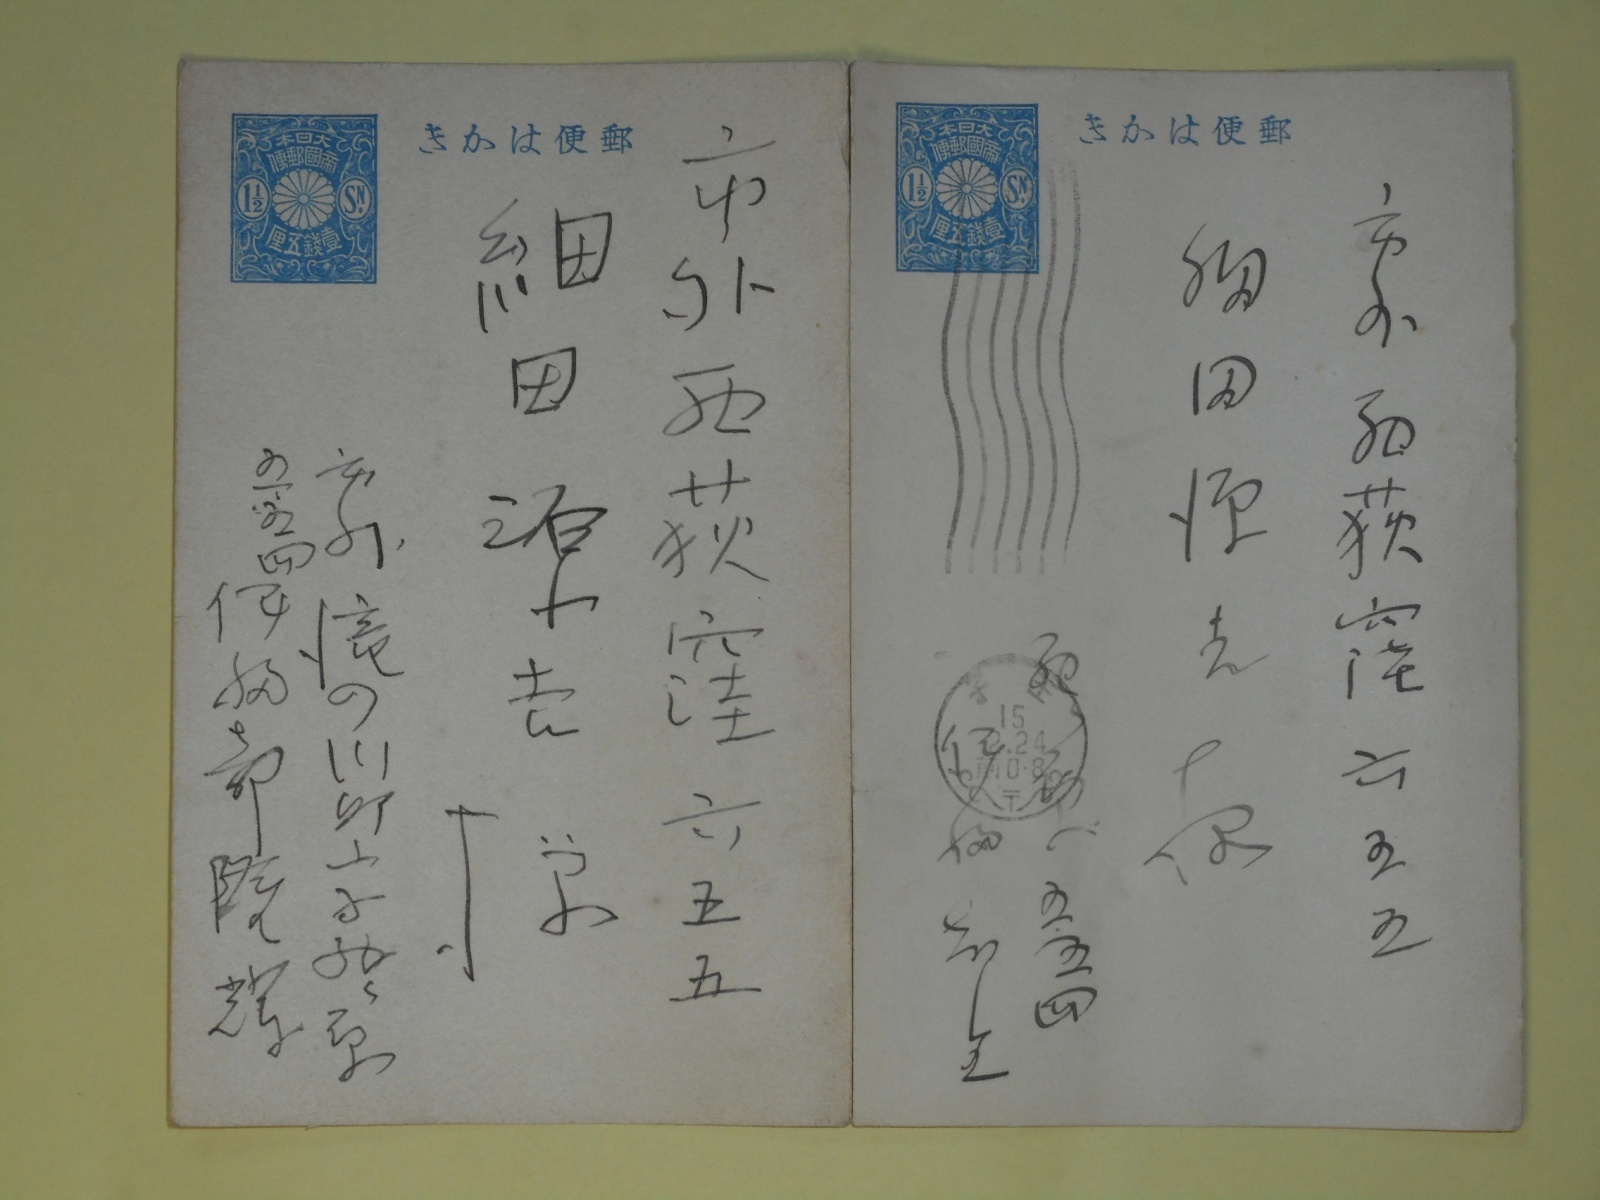 郵便はかき
大日本
帝國郵便
1½ SN.
壹錢五厘
市外西荻窪六五五
細田源吉様
市外滝の川町
五五四
伊福部隆輝
郵便はかき
大日本
帝國郵便
1½ SN.
壹錢五厘
市外西荻窪六五五
細田源吉様
15
2.24
前0-8
五五四
伊福